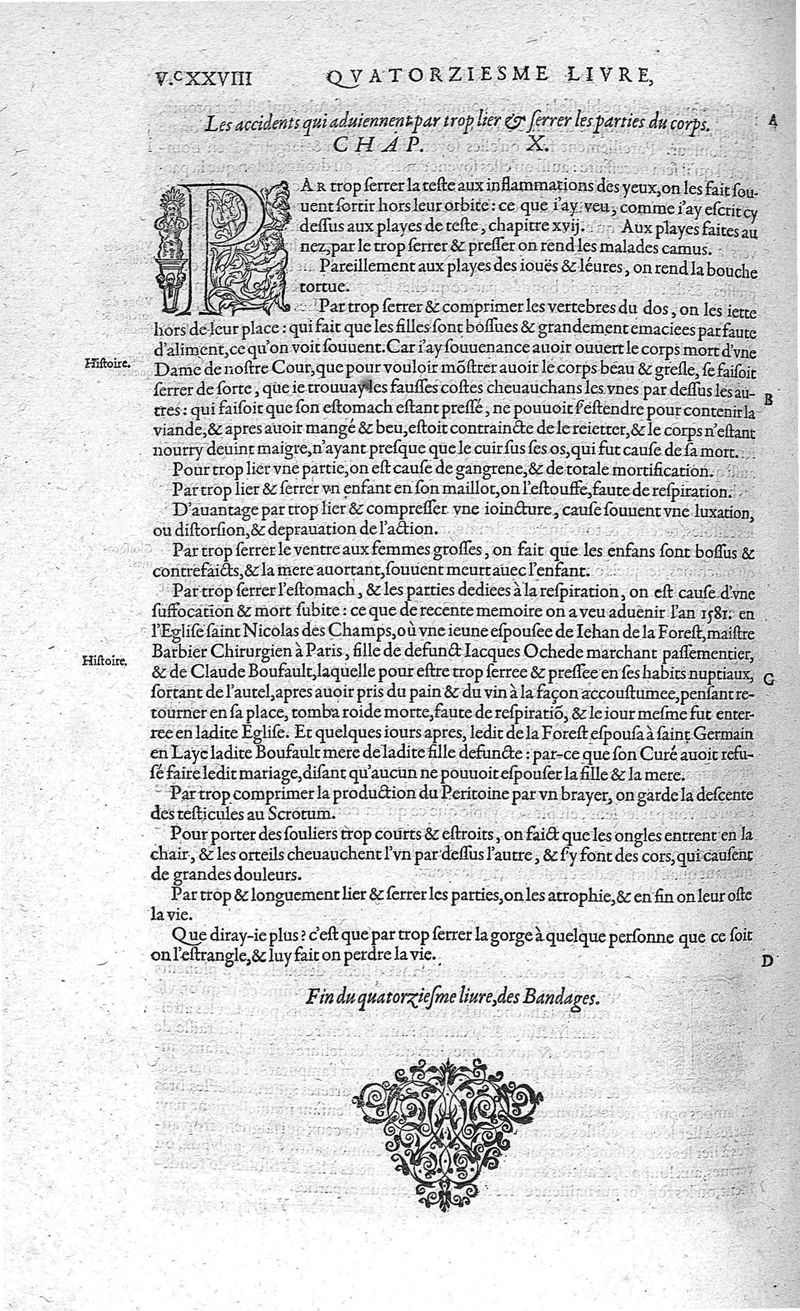 V.ᶜXXVIII QVATORZIESME LIVRE,
Les accidents qui aduiennent par trop lier & ſerrer les parties du corps. A
CHAP. X.
PAR trop ſerrer la teſte aux inflammations des yeux, on les fait ſou-
uent ſortir hors leur orbite: ce que i'ay veu, comme i'ay eſcrit cy
deſſus aux playes de teſte, chapitre xvij. Aux playes faites au
nez, par le trop ſerrer & preſſer on rend les malades camus.
Pareillement aux playes des iouës & léures, on rend la bouche
tortue.
Par trop ſerrer & comprimer les vertebres du dos, on les iette
hors de leur place: qui fait que les filles ſont boſſues & grandement emaciees par faute
d'aliment, ce qu'on voit ſouuent. Car i'ay ſouuenance auoir ouuert le corps mort d'vne
Hiſtoire. Dame de noſtre Cour, que pour vouloir mõſtrer auoir le corps beau & greſle, ſe faiſoit
ſerrer de ſorte, que ie trouuay les fauſſes coſtes cheuauchans les vnes par deſſus les au- B
tres: qui faiſoit que ſon eſtomach eſtant preſſé, ne pouuoit ſ'eſtendre pour contenir la
viande, & apres auoir mangé & beu, eſtoit contraincte de le reietter, & le corps n'eſtant
nourry deuint maigre, n'ayant preſque que le cuir ſus ſes os, qui fut cauſe de ſa mort.
Pour trop lier vne partie, on eſt cauſe de gangrene, & de totale mortification.
Par trop lier & ſerrer vn enfant en ſon maillot, on l'eſtouffe, faute de reſpiration.
D'auantage par trop lier & compreſſer vne ioincture, cauſe ſouuent vne luxation,
ou diſtorſion, & deprauation de l'action.
Par trop ſerrer le ventre aux femmes groſſes, on fait que les enfans ſont boſſus &
contrefaicts, & la mere auortant, ſouuent meurt auec l'enfant.
Par trop ſerrer l'eſtomach, & les parties dediees à la reſpiration, on eſt cauſe d'vne
ſuffocation & mort ſubite: ce que de recente memoire on a veu aduenir l'an 1581. en
l'Egliſe ſaint Nicolas des Champs, où vne ieune eſpouſee de Iehan de la Foreſt, maiſtre
Hiſtoire. Barbier Chirurgien à Paris, fille de defunct Iacques Ochede marchant paſſementier,
& de Claude Boufault, laquelle pour eſtre trop ſerree & preſſee en ſes habits nuptiaux, C
ſortant de l'autel, apres auoir pris du pain & du vin à la façon accouſtumee, penſant re-
tourner en ſa place, tomba roide morte, faute de reſpiratiõ, & le iour meſme fut enter-
ree en ladite Egliſe. Et quelques iours apres, ledit de la Foreſt eſpouſa à ſaint Germain
en Laye ladite Boufault mere de ladite fille defuncte: par-ce que ſon Curé auoit refu-
ſé faire ledit mariage, diſant qu'aucun ne pouuoit eſpouſer la fille & la mere.
Par trop comprimer la production du Peritoine par vn brayer, on garde la deſcente
des teſticules au Scrotum.
Pour porter des ſouliers trop courts & eſtroits, on faict que les ongles entrent en la
chair, & les orteils cheuauchent l'vn par deſſus l'autre, & ſ'y font des cors, qui cauſent
de grandes douleurs.
Par trop & longuement lier & ſerrer les parties, on les atrophie, & en fin on leur oſte
la vie.
Que diray-ie plus? c'eſt que par trop ſerrer la gorge à quelque perſonne que ce ſoit
on l'eſtrangle, & luy fait on perdre la vie. D
Fin du quatorzieſme liure, des Bandages.